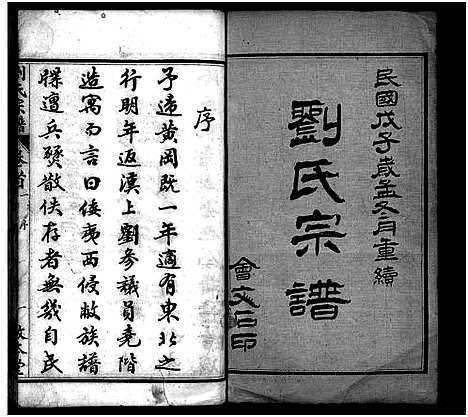 民國戊子歲孟冬月重續
劉氏宗譜
會文石印
序
予蒞黃岡既一年適有東北之
行明年返漢上劉參議員堯階
造寓而言曰倭夷西侵敝族譜
牒遭兵燹散佚存者無幾自民
劉氏宗譜
卷首 序